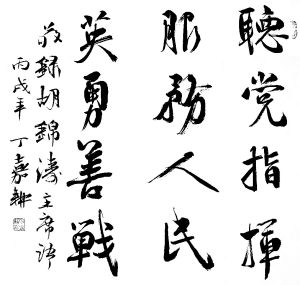 聽党指揮
服務人民
英勇善戰
敬録胡錦濤主席語
丙戌年 丁嘉耕